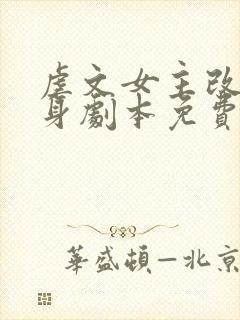 虐文女主改
身劇本免費
華盛頓—北京